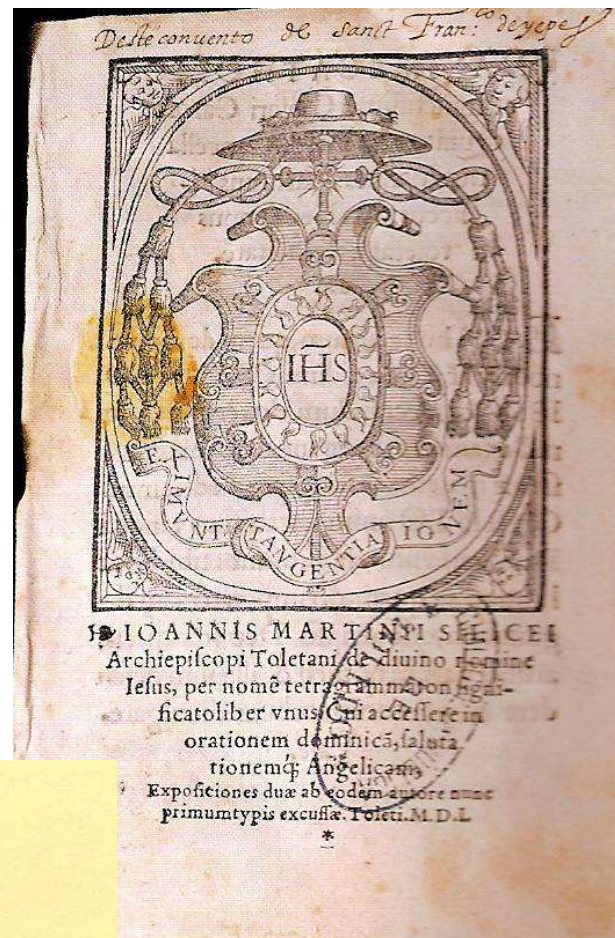 Deste convento de Sanct Fran:co de yepes
IHS
EXIMVNT TANGENTIA IGNEM
IOANNIS MARTINI SILICEI
Archiepiſcopi Toletani, de diuino nomine
Ieſus, per nomē tetragrammaton ſigni-
ficatoliber vnus. Cui acceſſere in
orationem dominicā, ſaluta
tionemq́; Angelicam,
Expoſitiones duæ ab eodem autore nunc
primumtypis excuſſæ. Toleti. M. D. L
*